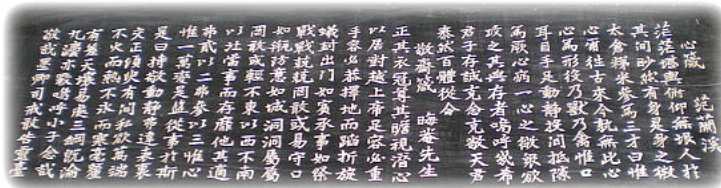 心箴 范蘭溪
茫茫堪輿俯仰無垠人於
其間眇然有身是身之微
太倉稊米參爲三才曰惟
心爾往古來今孰無此心
心爲形役乃獸乃禽惟口
耳目手足動靜投間抵隙
爲厥心病一心之微衆欲
攻之其與存者嗚呼幾希
君子存誠克念克敬天君
泰然百體從令
敬齋箴 晦菴先生
正其衣冠尊其瞻視潛心
以居對越上帝足容必重
手容必恭擇地而蹈折旋
蟻封出門如賓承事如祭
戰戰兢兢罔敢或易守口
如瓶防意如城洞洞屬屬
罔敢或輕不東以西不南
以北當事而存靡他其適
弗貳以二弗參以三惟心
惟一萬變是監從事於斯
是曰持敬動靜弗違表裏
交正須臾有間私欲萬端
不火而熱不氷而寒毫釐
有差天壤易處三綱旣淪
九法亦斁嗚呼小子念哉
敬哉墨卿司戒敢告靈臺